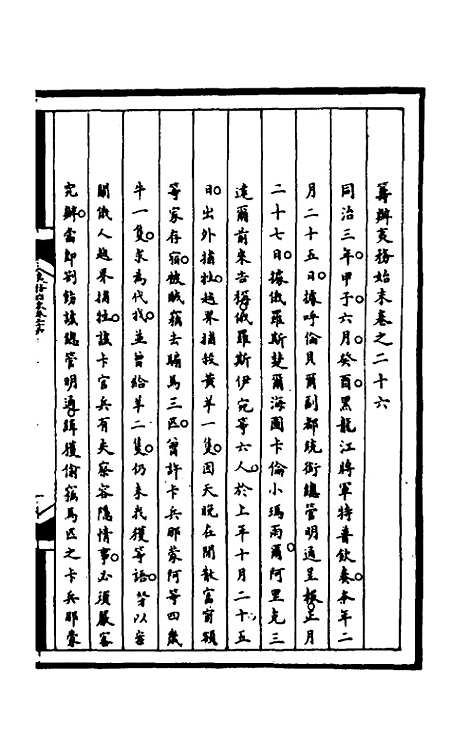 籌辦夷務始末卷之二十六
同治三年。甲子。六月。癸酉。黑龍江將軍特普欽奏。本年二
月二十五日。據呼倫貝爾副都統銜總管明通呈報。正月
二十七日。據俄羅斯楚爾海圖卡倫小瑪雨爾阿里克三
達爾前來告稱。俄羅斯伊宛等六人。於上年十月二十五
日。出外捕牲。越界捕投黃羊一隻。因天晚在閒散富甯額
等家存宿。被賊竊去騸馬三匹。曾許卡兵那蒙阿等四歲
牛一隻。求為代找。並曾給羊二隻。仍未找獲等語。等以案
關俄人越界捕牲。該卡官兵有失察容隱情事。亟須嚴密
究辦。當即劄飭該總管明通。緝獲偷竊馬匹之卡兵那蒙